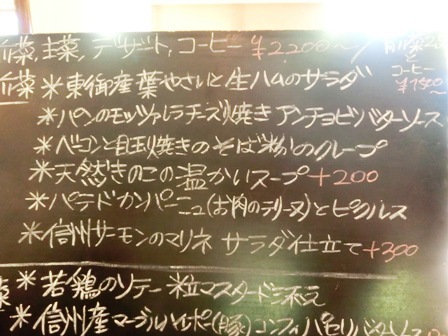 前菜, 主菜, デザート, コーヒー ¥2,200〜
前菜と
コーヒー
¥1,500〜
前菜 * 東御産葉やさいと生ハムのサラダ
* パンのモッツァレラチーズ焼き アンチョビバターソース
* ベーコンと目玉焼きのそば粉のクレープ
* 天然きのこの温かいスープ +200
* パテドカンパーニュ(お肉のテリーヌ)とピクルス
* 信州サーモンのマリネ サラダ仕立て +300
菜 * 若鶏のソテー 粒マスタード添え
* 信州産マーブルポーク(豚)コンフィ パセリバターソース